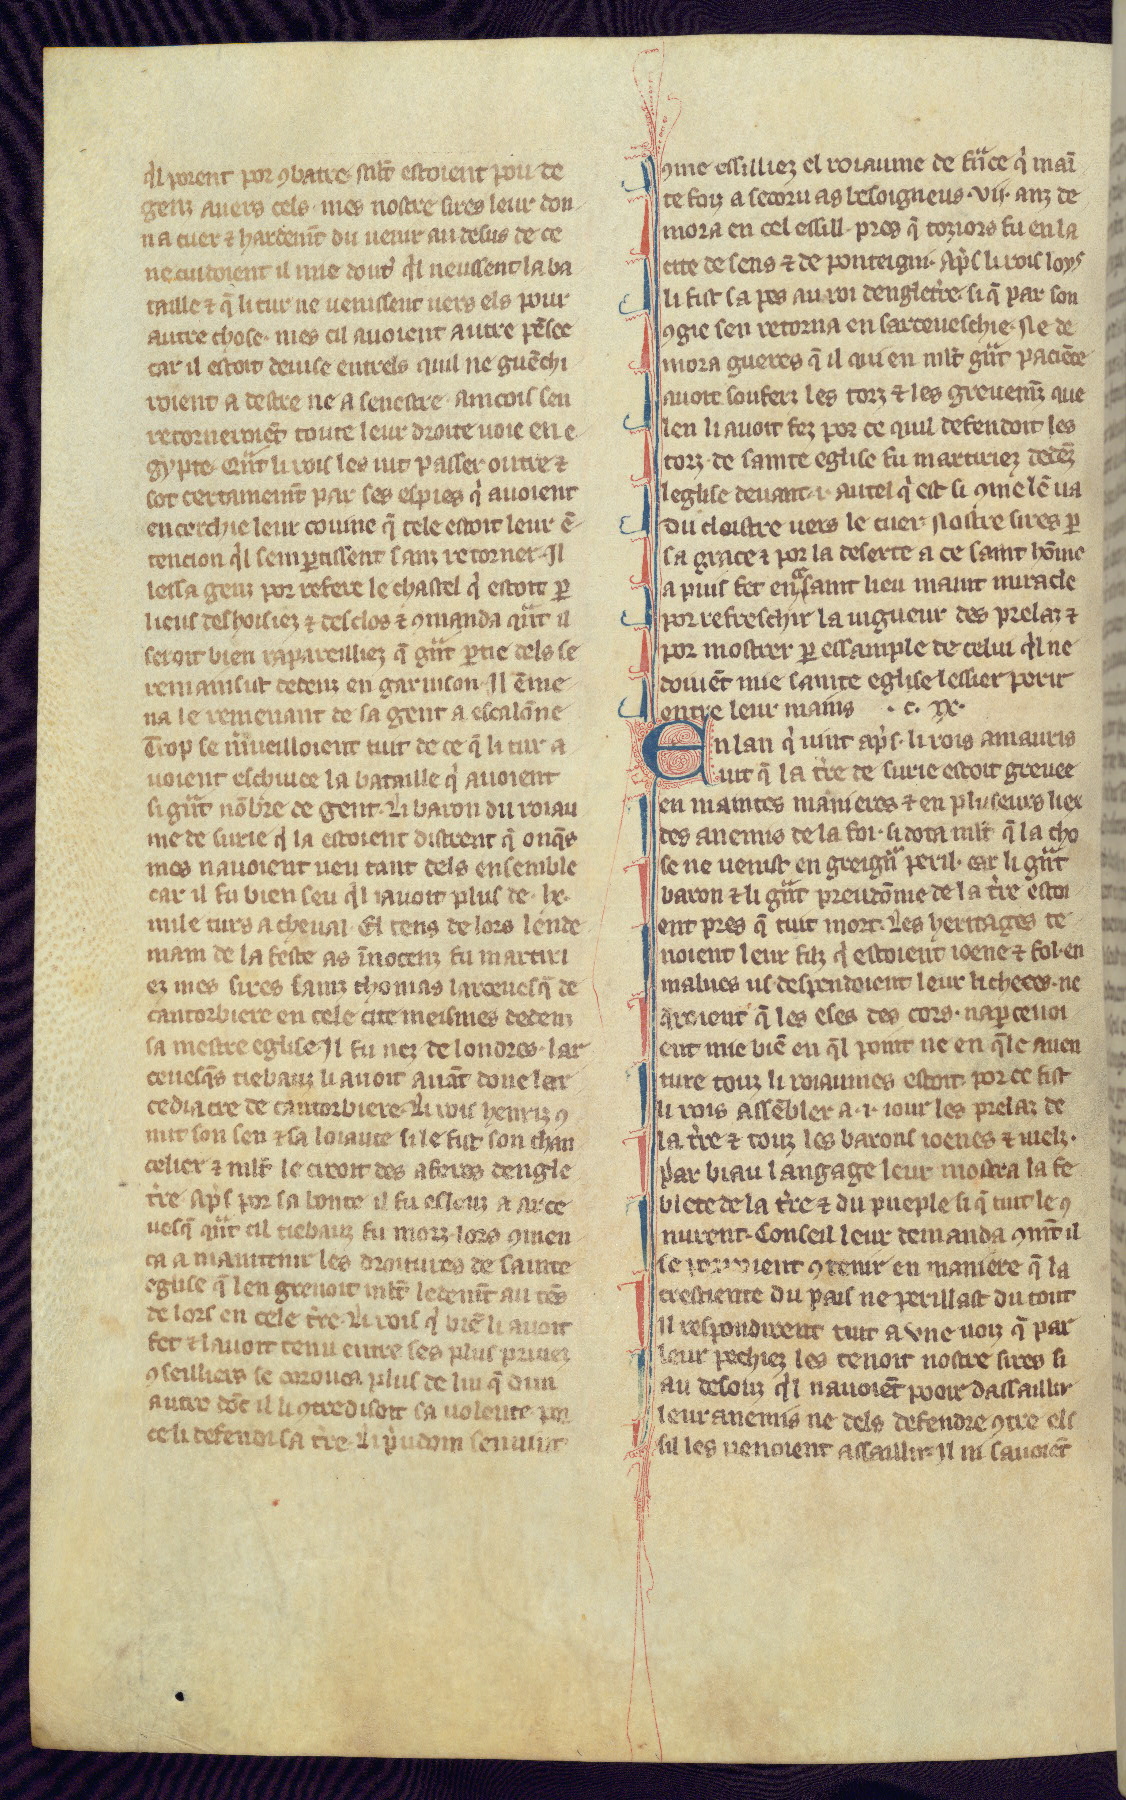 q̇l porent por ꝯbatre· ml̃t estoient pou de
genz auers cels· mes nostre sires leur don
na cuer ⁊ hardem̃t du uenir au desus de ce
ne cuidoient il mie dout̾ q̇l neussent la ba
taille ⁊ q̃ li tur ne uenissent uers els pour
autre chose· mes cil auoient autre pẽsee
car il estoit deuise entrels quil ne guẽchi
roient a destre ne a senestre· Aincois sen
retorneroiẽt toute leur droite uoie en e
gypte· Qñt li rois les uit passer outre ⁊
sot certainem̃t par ses espies q̇ auoient
encerchie leur couine q̃ tele estoit leur ẽ
tencion q̇l sem ꝑtissent sanz retorner· Il
lessa genz por refere le chastel q̇ estoit ꝑ
lieus deshoisiez ⁊ desclos ⁊ ꝯmanda qñt il
seroit bien rapareilliez q̃ gñt ꝑtie dels se
remainsist dedenz en garnison· Il ẽme
na le remenant de sa gent a escalõne
Trop se m̾ueilloient tuit de ce q̃ li tur a
uoient eschiuee la bataille q̇ auoient
si gñt nõbre de gent· Li baron du roiau
me de surie q̇ la estoient distrent q̃ onq̃s
mes nauoient ueu tant dels ensemble
car il fu bien seu q̇l iauoit plus de· lx·
mile turs a cheual· El tens de lors lende
main de la feste as ĩnocenz fu martiri
ez mes sires sainz thomas larceuesq̃ de
cantorbiere en cele cite meismes dedenz
sa mestre eglise· Il fu nez de londres· lar
ceuesq̃s tiebauz li auoit auãt done lar
cediacre de cantorbiere· Li rois henriz ꝯ
nut son sen ⁊ sa loiaute si le fist son chan
celier ⁊ ml̃t le croit des aferes dengle
t̾re Ap̃s por sa bonte il fu esleuz a arce
uesq̃ qñt cil tiebauz fu morz· lors ꝯmen
ca a maintenir les droitures de sainte
eglise q̃ len greuoit ml̃t ledem̃t au tẽs
de lors en cele t̾re· Li rois q̇ biẽ li auoit
fet ⁊ lauoit tenu entre ses plus priuez
ꝯseilliers se coroucа plus de lui q̃ dun
autre dõt il li ꝯtredisoit sa uolente por
ce li defendi sa t̾re· Li p̾udom sen uint
ꝯme essilliez el roiaume de fr̃ce q̇ mai̇
te foiz a secoru as besoigneus· Vii· anz de
mora en cel essill· pres q̃ toziors fu en la
cite de sens ⁊ de ponteigni· Ap̃s li rois loys
li fist sa pes au roi denglet̾re· si q̃ par son
ꝯgie sen retorna en sarceueschie· Ne de
mora gueres q̃ il qui en ml̃t gñt paciẽce
auoit soufert les torz ⁊ les greuem̃z que
len li auoit fez por ce quil defendoit les
torz de sainte eglise fu martiriez dedẽz
leglise deuant ·i· autel q̇ est si ꝯme lẽ ua
du cloistre uers le cuer· Nostre sires ꝑ
sa grace ⁊ por la deserte a ce saint hõme
a puis fet en ce saint lieu maint miracle
por refreschir la uigueur des prelaz ⁊
por mostrer ꝑ essample de celui q̇l ne
doiuẽt mie sainte eglise lessier perir
entre leur mains · c· xx·
En lan q̇ uint ap̃s· li rois amauris
uit q̃ la t̾re de surie estoit greuee
en maintes manieres ⁊ en pluseurs liex
des anemis de la foi· si dota ml̃t q̃ la cho
se ne uenist en greign̾ peril· car li gñt
baron ⁊ li gñt preudõme de la t̾re estoi
ent pres q̃ tuit mort· Les heritages te
noient leur filz q̇ estoient ioene ⁊ fol· en
malues us despendoient leur richeces· ne
q̾roient q̃ les eses des cors· napꝑceuoi
ent mie biẽ en q̃l point ne en q̃le auen
ture touz li roiaumes estoit· por ce fist
li rois assẽbler a ·i· iour les prelaz de
la t̾re ⁊ touz les barons ioenes ⁊ uielz·
Par biau langage leur mostra la fe
blete de la t̾re ⁊ du pueple si q̃ tuit le ꝯ
nurent· Conseil leur demanda ꝯm̃t il
se porroient ꝯtenir en maniere q̃ la
crestiente du pais ne perillast du tout
il respondirent tuit a vne uoiz q̃ par
leur pechiez les tenoit nostre sires si
au desouz q̇l nauoiẽt pooir dassaillir
leur anemis ne dels defendre ꝯtre els
sil les uenoient assaillir· Il ni sauoiẽt